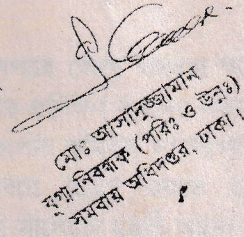 মোঃ আসাদুজ্জামান
যুগ্ম-নিবন্ধক (পরিঃ ও উন্নঃ)
সমবায় অধিদপ্তর, ঢাকা।